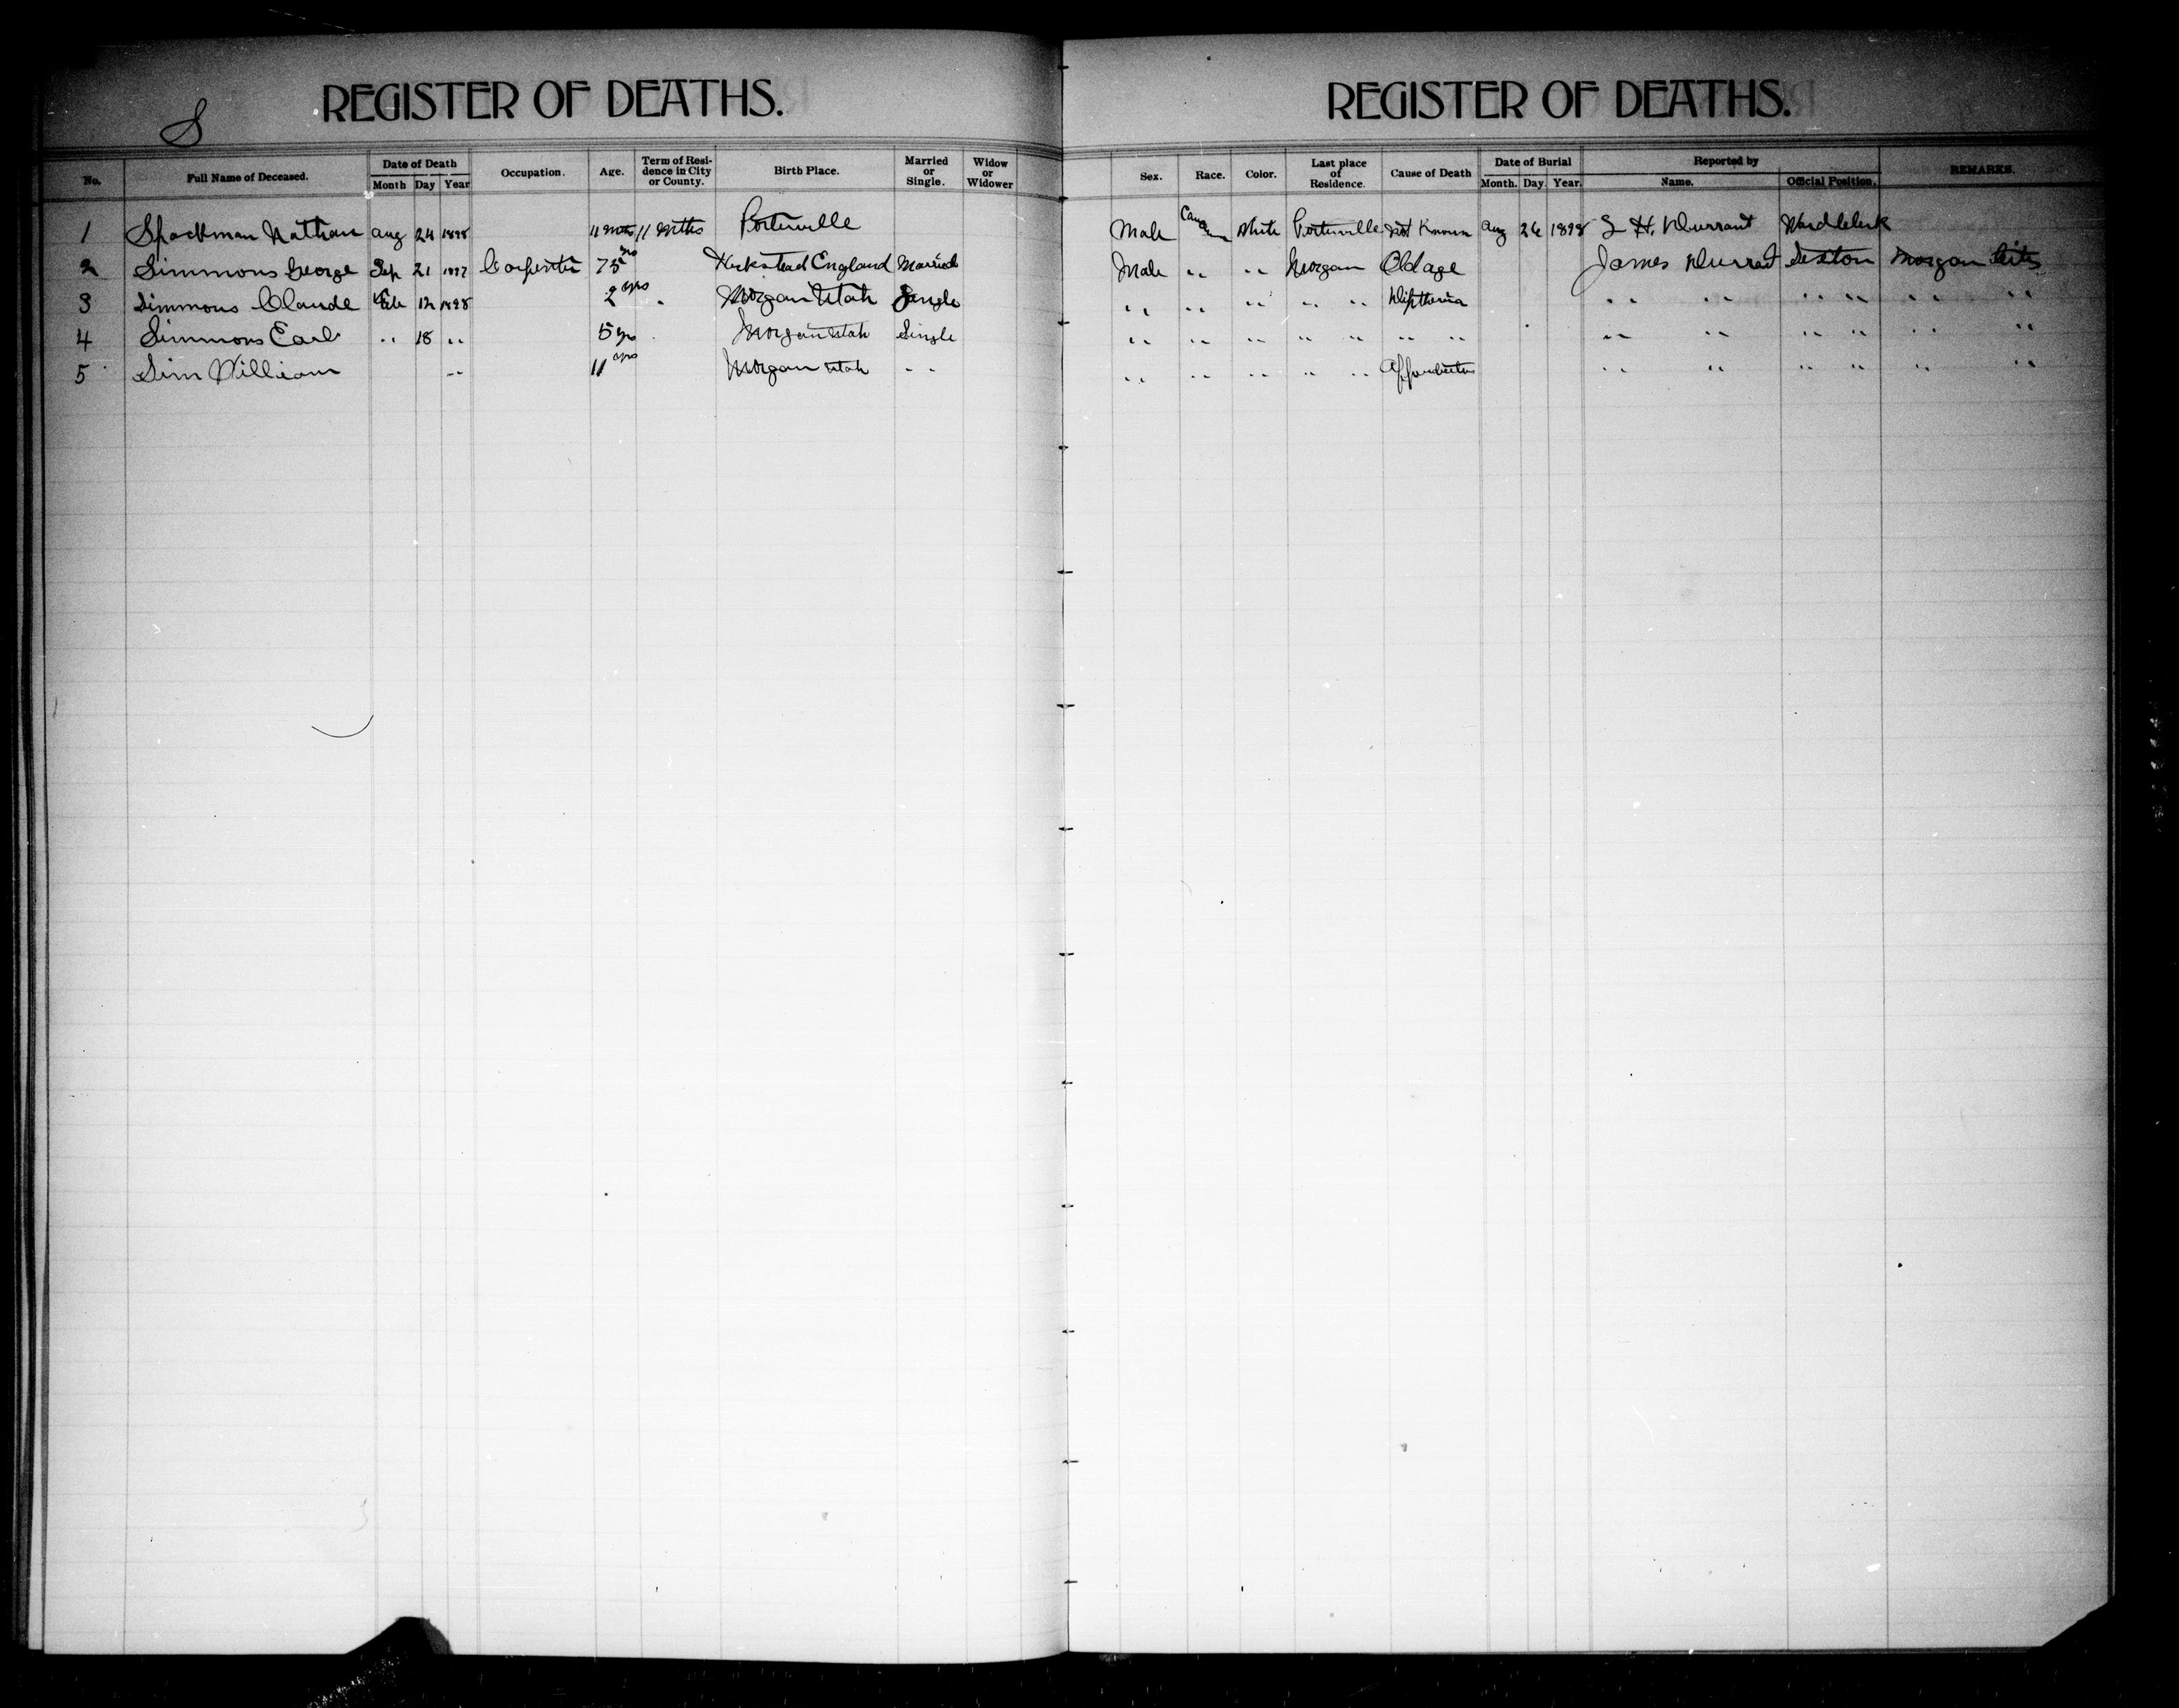 S
REGISTER OF DEATHS.
No. Full Name of Deceased. Date of Death Month Day Year Occupation. Age. Term of Resi-dence in City or County. Birth Place. Married or Single. Widow or Widower
1 Spackman Nathan Aug 24 1898 11 mths 11 mths Porterville
2 Simmons George Sep 21 1897 Carpenter 75 yrs England Married
3 Simmons Claude Feb 12 1898 2 yrs Morgan Utah Single
4 Simmons Earl " 18 " 5 yrs Morgan Utah Single
5 Sim William " 11 yrs Morgan Utah "
REGISTER OF DEATHS.
Sex. Race. Color. Last place of Residence. Cause of Death Date of Burial Month. Day. Year. Reported by Name. Official Position. REMARKS.
Male White Porterville Not Known Aug 26 1898 H. Durrant Ward Clerk
Male " " Morgan Old age James Durrant Sexton Morgan City
" " " " " Diptheria " " " " " "
" " " " " " " " " " " " "
" " " " " " " " " " "